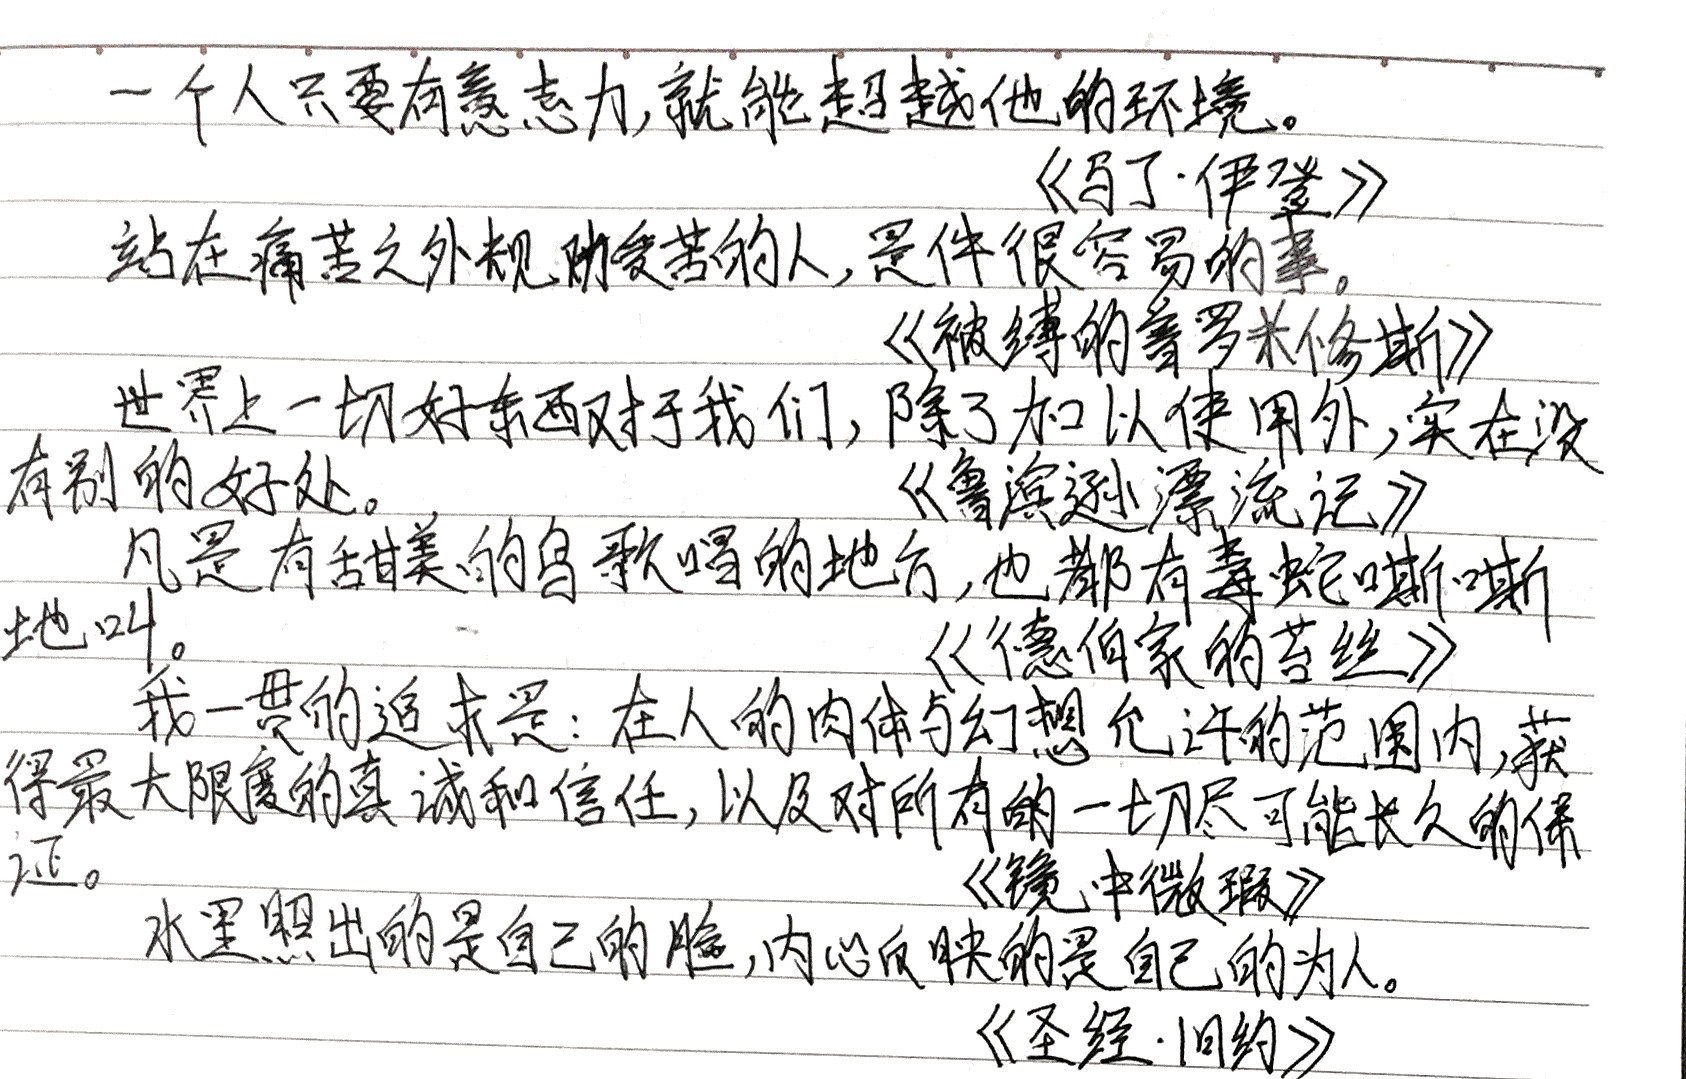 一个人只要有意志力,就能超越他的环境。
《马丁·伊登》
站在痛苦之外规劝受苦的人,是件很容易的事。
《被缚的普罗米修斯》
世界上一切好东西对于我们,除了加以使用外,实在没
有别的好处。
《鲁滨逊漂流记》
凡是有甜美的鸟歌唱的地方,也都有毒蛇嘶嘶
地叫。
《德伯家的苔丝》
我一贯的追求是:在人的肉体与幻想允许的范围内,获
得最大限度的真诚和信任,以及对所有的一切尽可能长久的保
证。
《镜中微瑕》
水里照出的是自己的脸,内心反映的是自己的为人。
《圣经·旧约》